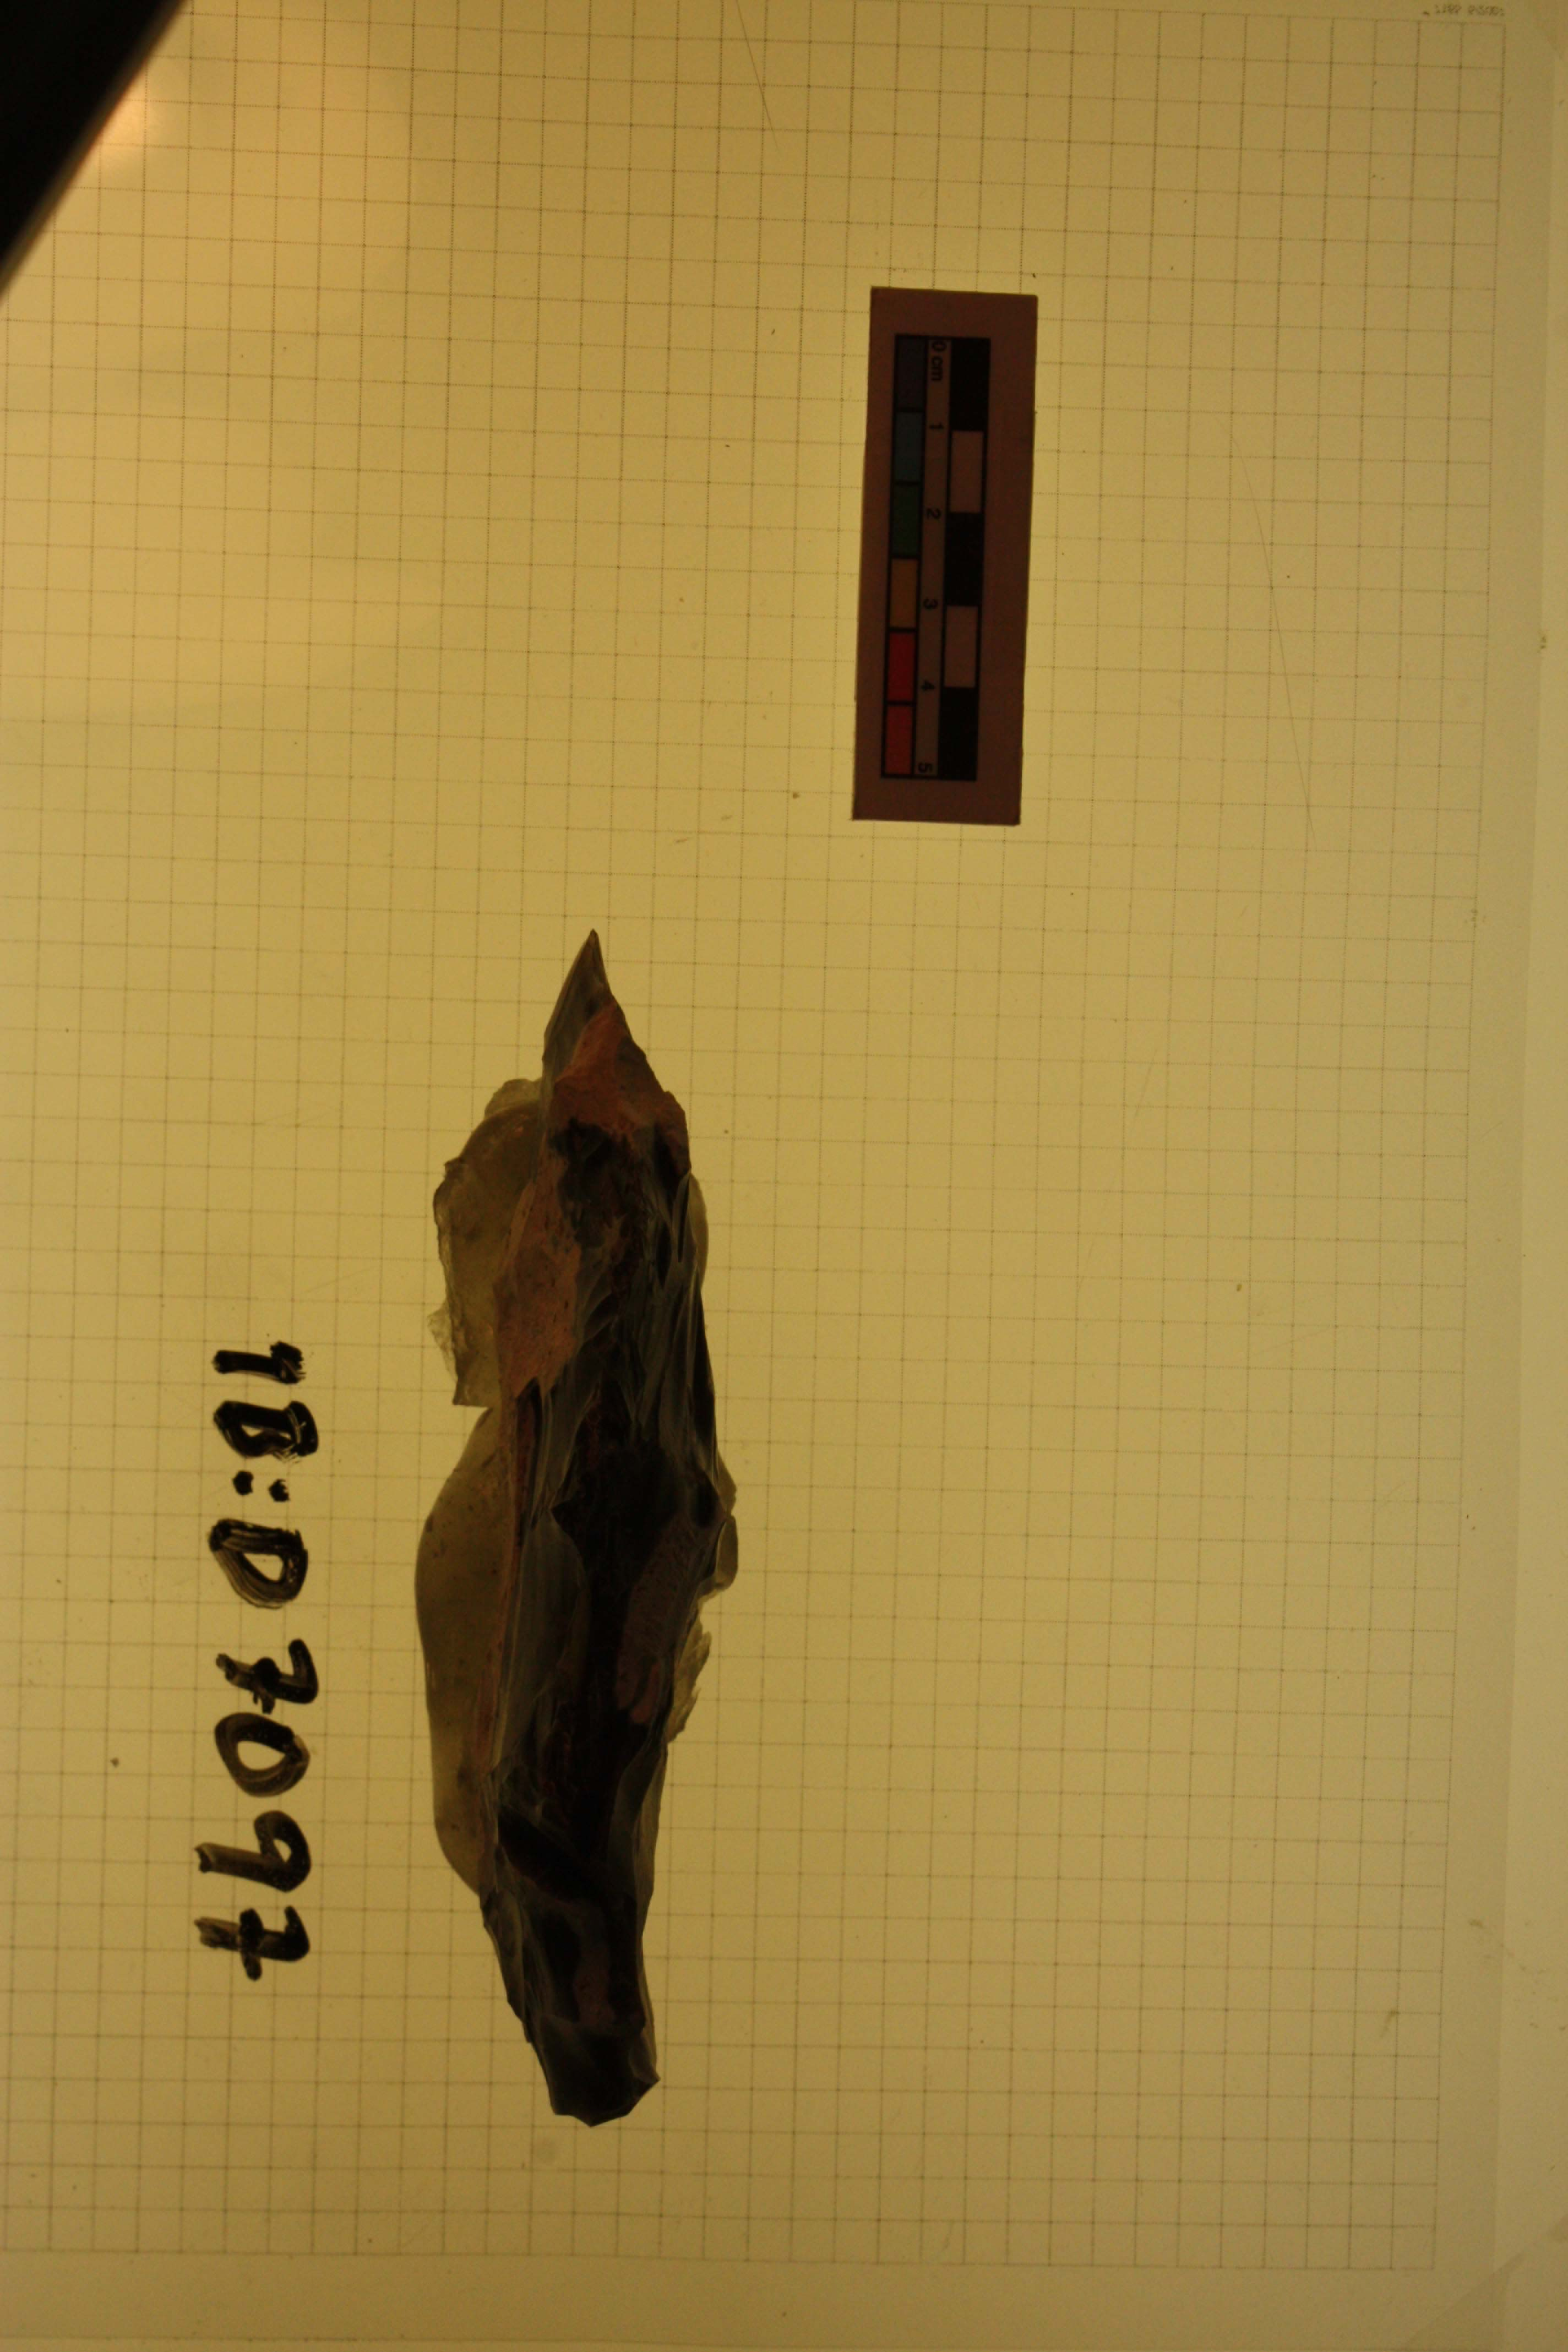 0 cm 1 2 3 4 5
ID:D 7097